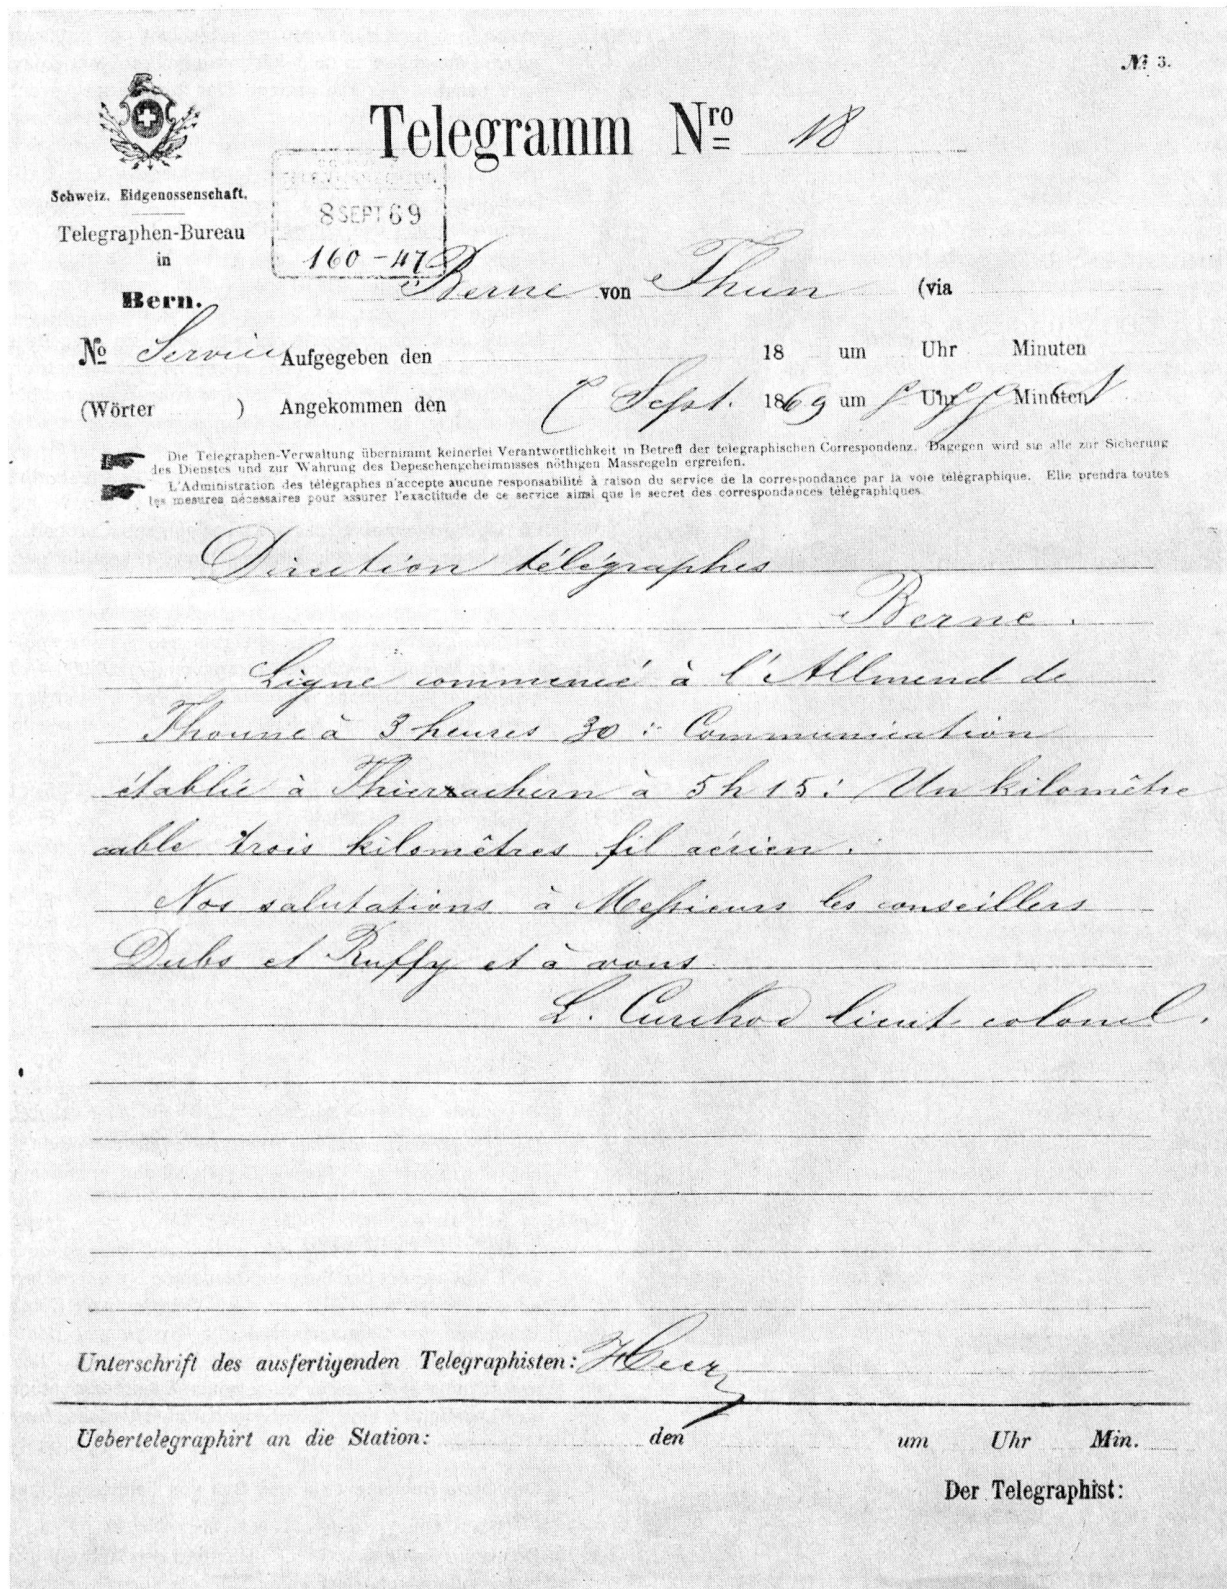 № 3.
Telegramm Nro 18
Schweiz. Eidgenossenschaft.
Telegraphen-Bureau
in
Bern.
8 SEPT 69
160-47
Berne von Thun (via
No Service Aufgegeben den 18 um Uhr Minuten
(Wörter ) Angekommen den Sept. 1869 um Uhr Minuten
Die Telegraphen-Verwaltung übernimmt keinerlei Verantwortlichkeit in Betreff der telegraphischen Correspondenz. Dagegen wird sie alle zur Sicherung
des Dienstes und zur Wahrung des Depeschengeheimnisses nöthigen Massregeln ergreifen.
L'Administration des télégraphes n'accepte aucune responsabilité à raison du service de la correspondance par la voie télégraphique. Elle prendra toutes
les mesures nécessaires pour assurer l'exactitude de ce service ainsi que le secret des correspondances télégraphiques.
Direction télégraphes
Berne.
Ligne commencé à l'Allmend de
Thoune à 3 heures 30 : Communication
établie à Thierachern à 5 h 15 : Un kilomètre
cable trois kilomêtres fil aérien.
Nos salutations à Messieurs les conseillers
Dubs et Ruffy et à vous
L. Curchod lieut. colonel.
Unterschrift des ausfertigenden Telegraphisten: Heer
Uebertelegraphirt an die Station: den um Uhr Min.
Der Telegraphist: